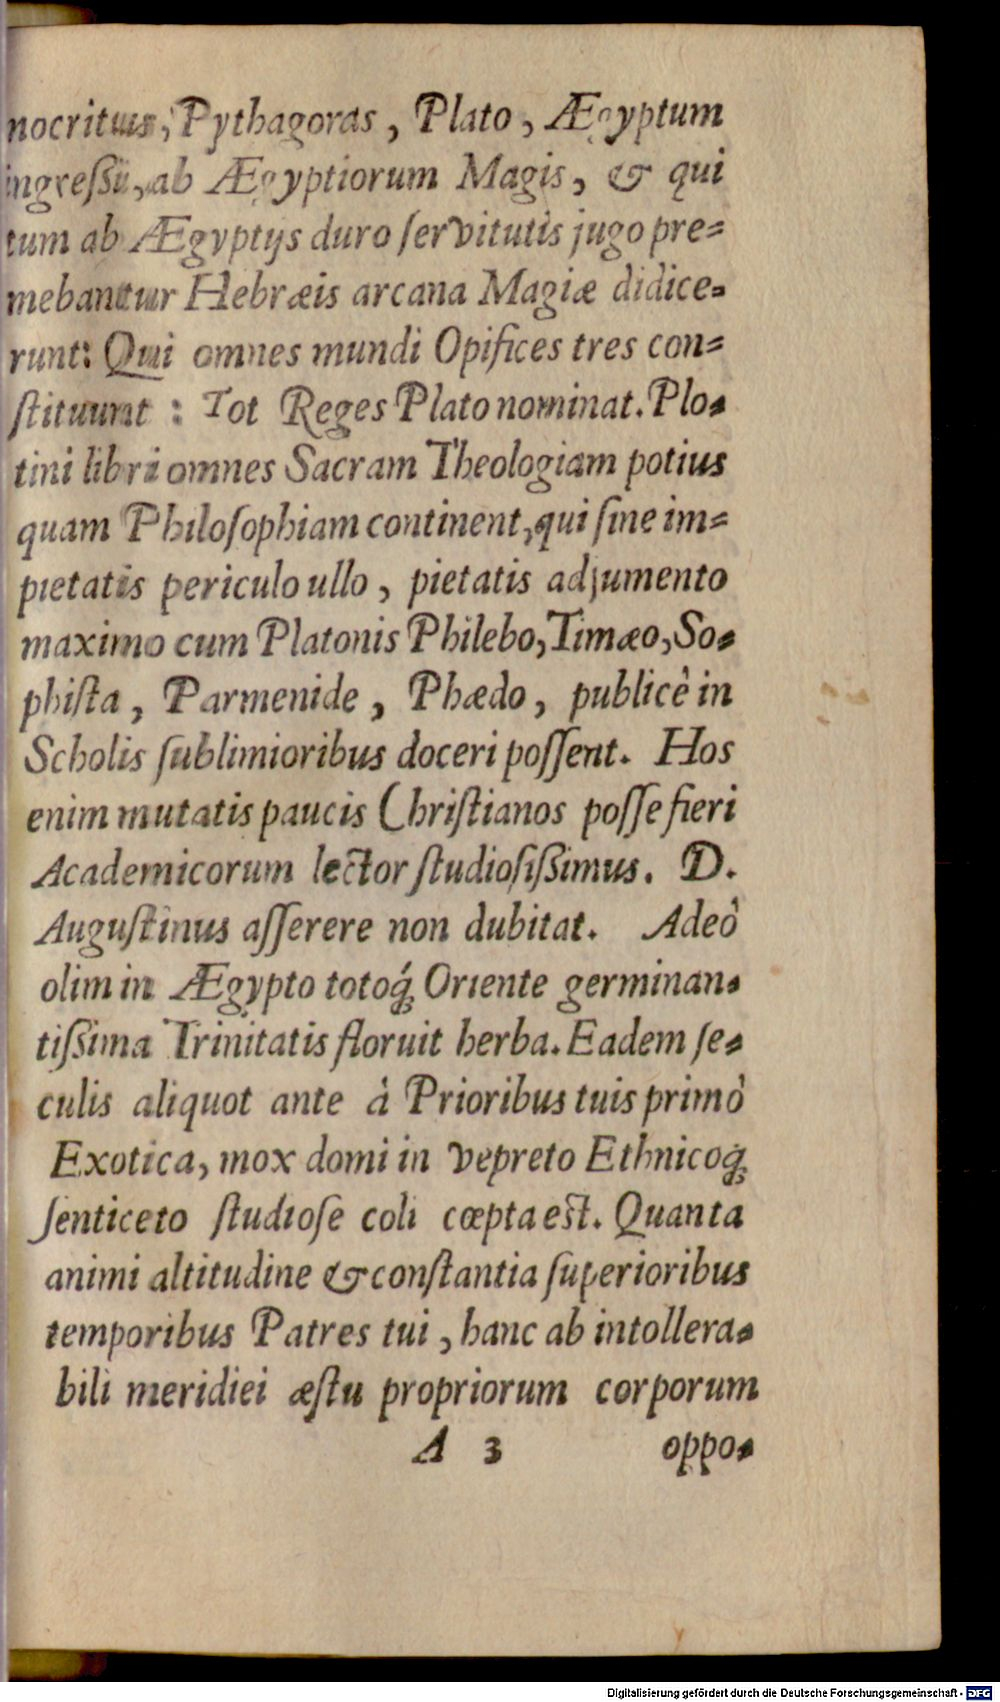 nocritus, Pythagoras, Plato, Ægyptum
ingreſsi, ab Ægyptiorum Magis, & qui
tum ab Ægyptijs duro ſervitutis jugo pre=
mebantur Hebræis arcana Magiæ didice=
runt: Qui omnes mundi Opifices tres con=
ſtituunt : Tot Reges Plato nominat. Plo=
tini libri omnes Sacram Theologiam potius
quam Philoſophiam continent, qui ſine im=
pietatis periculo ullo, pietatis adjumento
maximo cum Platonis Philebo, Timæo, So=
phiſta, Parmenide, Phædo, publicè in
Scholis ſublimioribus doceri poſſent. Hos
enim mutatis paucis Chriſtianos poſſe fieri
Academicorum lector ſtudioſißimus. D.
Auguſtinus aſſerere non dubitat. Adeò
olim in Ægypto totoq́; Oriente germinan=
tißima Trinitatis floruit herba. Eadem ſe=
culis aliquot ante à Prioribus tuis primò
Exotica, mox domi in vepreto Ethnicoq́;
ſenticeto ſtudioſe coli cœpta eſt. Quanta
animi altitudine & conſtantia ſuperioribus
temporibus Patres tui, hanc ab intollera=
bili meridiei æſtu propriorum corporum
A 3 oppo=
Digitalisierung gefördert durch die Deutsche Forschungsgemeinschaft - DFG